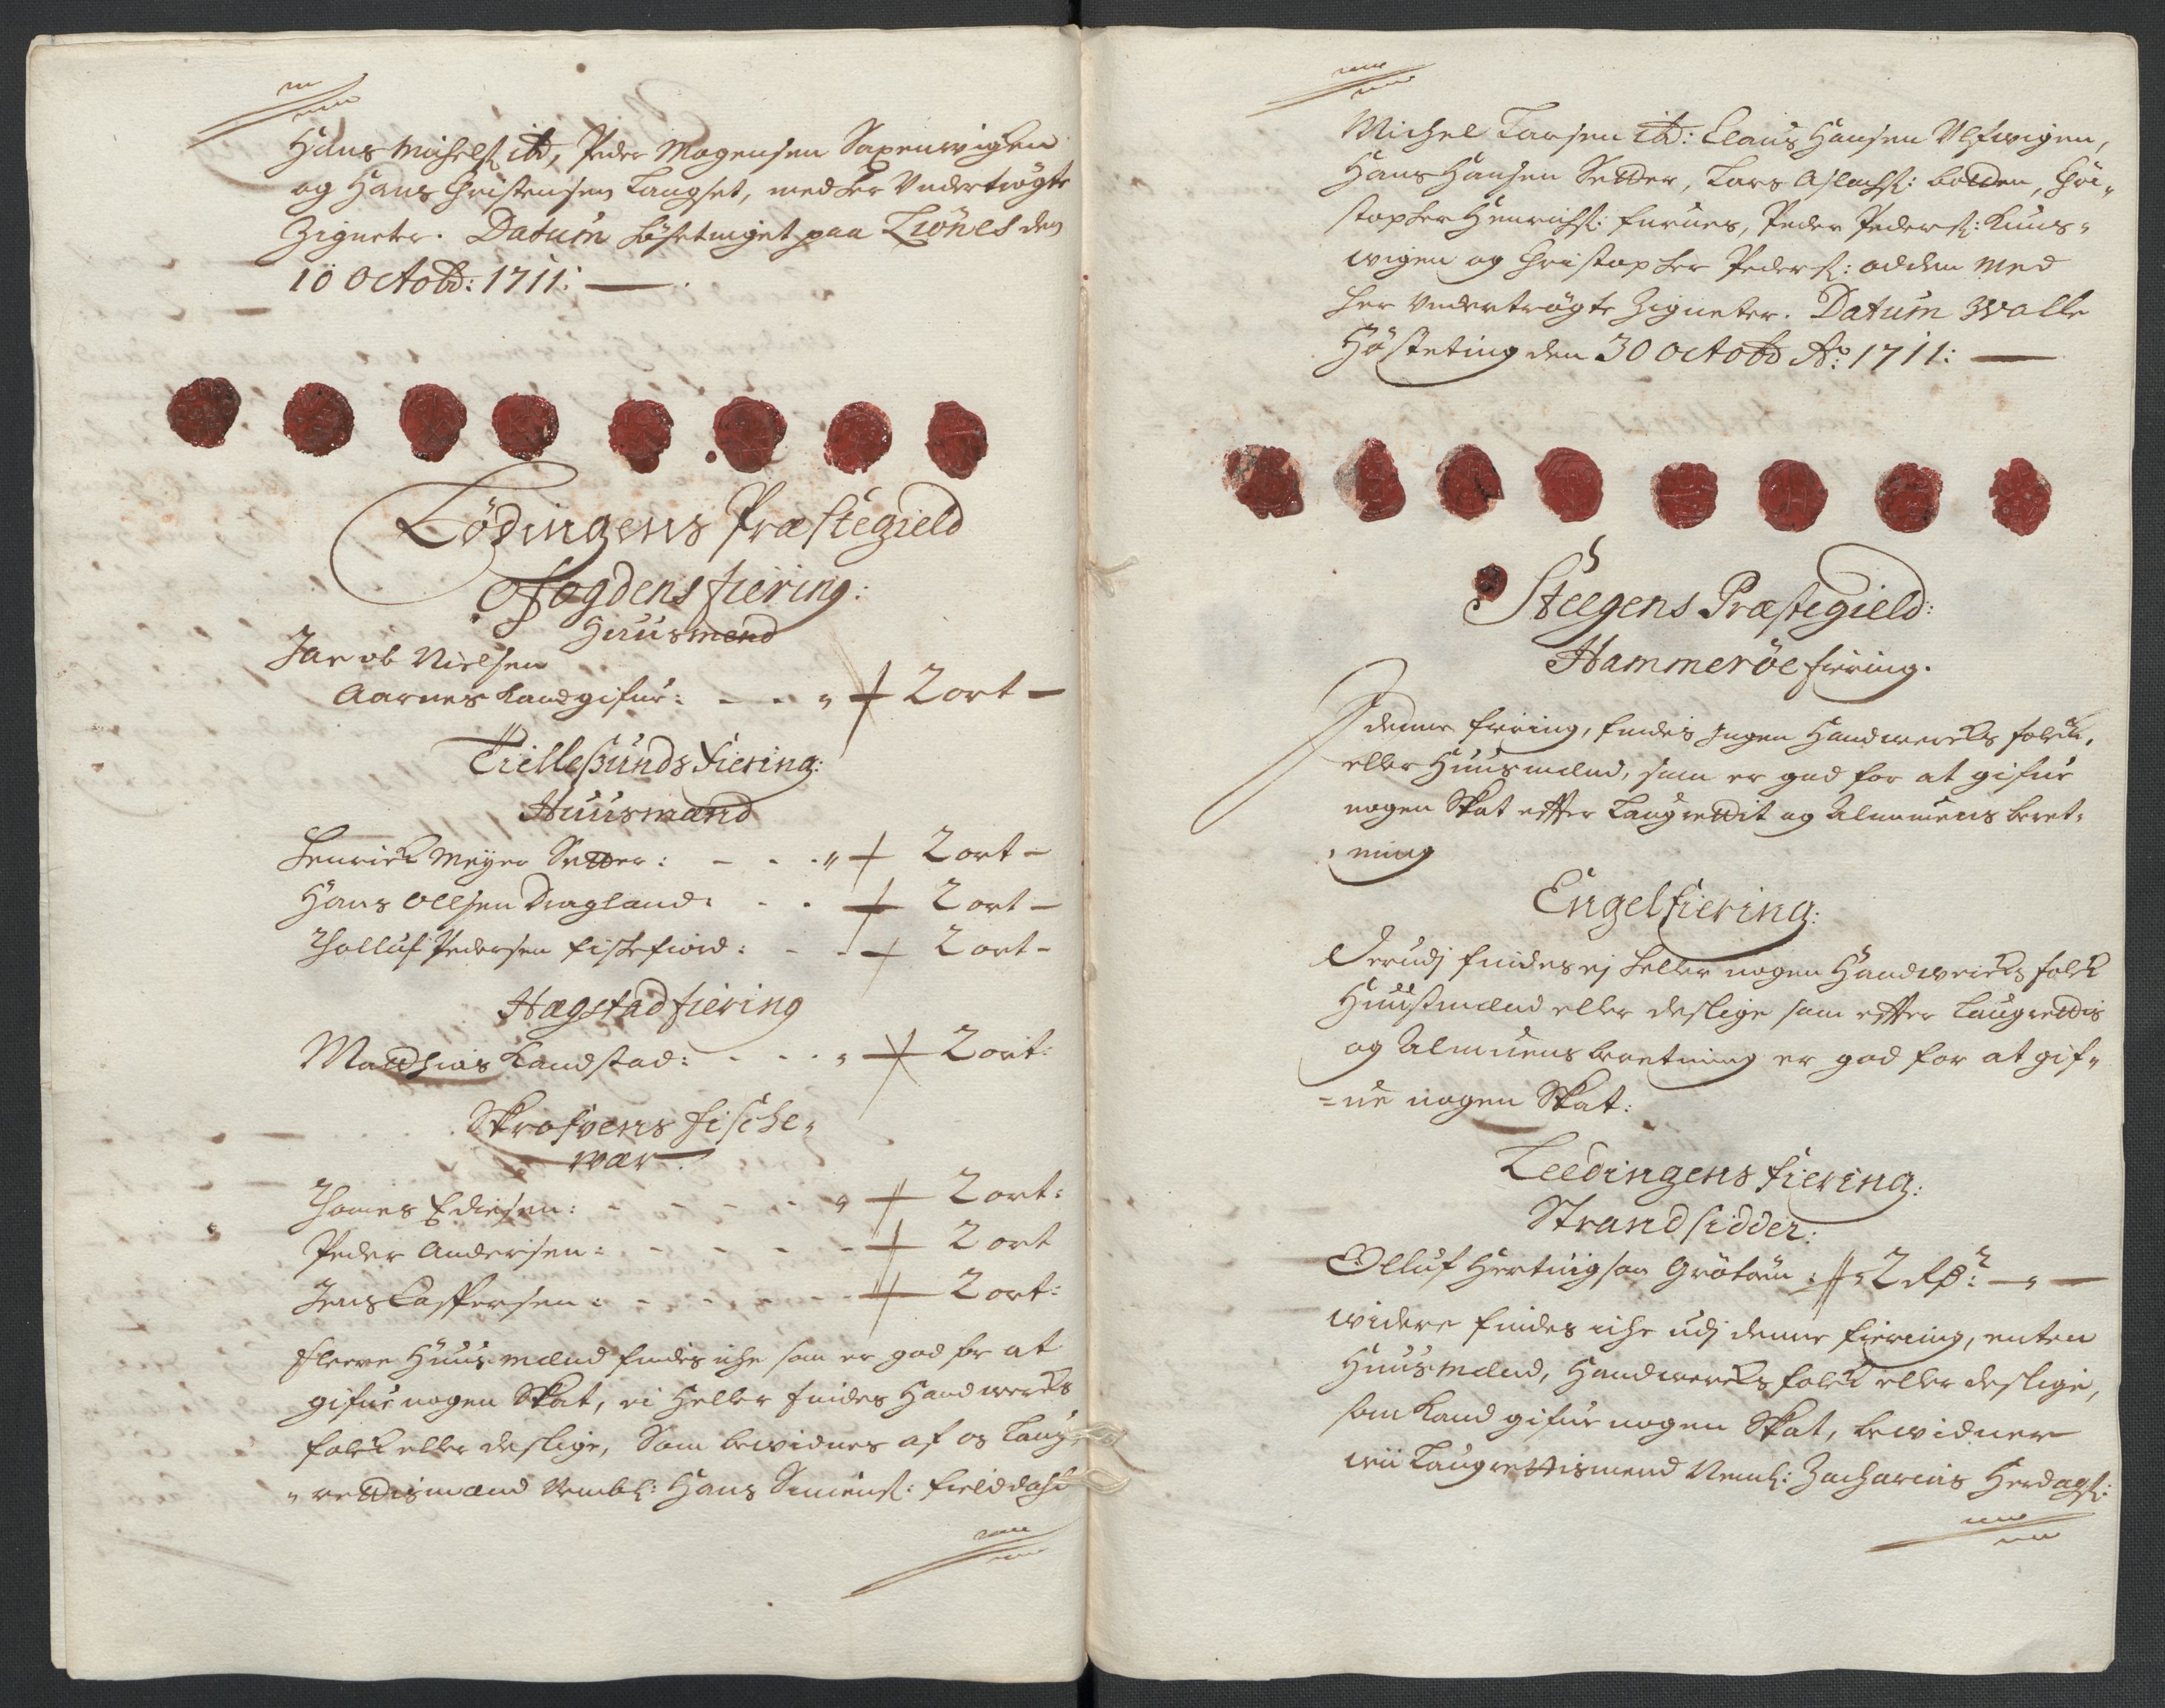 Hans Michels: ibd, Peder Mogensen Saxenvigen
og Hans Christensen Langset, med her Undertrögte
Zigneter. Datum Höstetinget paa Liönes den
10 Octobr: 1711:
Lödingens Præstegield
Ofogdens fiering:
Huusmænd
Jacob Nielsen
Aarnes kand gifue: - - - 2 ort -
Tiellesunds Fiering:
Huusmænd
Henrick Meyer Setter: - - - 2 ort -
Hans Ollsen Dragland: - - 2 ort -
Tholluf Pedersen fiskefiord: - - 2 ort -
Hægstad fiering
Matthias Kandstad: - - - 2 ort:
Skrofvens fiske-
wær:
Thomes Ediesen: - - - - 2 ort:
Peder Andersen: - - - - 2 ort
Jens Caspersen: - - - - 2 ort:
fleere Huusmænd findes iche som er god for at
gifue nogen Skat, ei heller findes Handwercks
folck eller deslige, Som bewidnes af os Laug-
-rettismænd Nembl: Hans Simens: fielddahl
Michel Larsen ibd: Claus Hansen Ulfwigen,
Hans Hansen Setter, Lars Aslachs: Botden, Chri-
stopher Henrichs: furnes, Peder Peders: Kuus-
wigen og Christopher Peders: Odden med
her undertrögte Zigneter. Datum Walle
Hösteting den 30 Octobr Ao: 1711:
Steegens Præstegield:
Hammeröe fiering.
I denne fiering, findes Ingen Handwercks folck,
eller Huusmænd, som er god for at gifue
nogen Skat effter Laugrettit og Almuens beret-
-ning
Engelfiering:
Derudj findes ej heller nogen Handwercks folck
Huusmænd eller deslige som effter Laugrettis
og Almuens beretning er god for at gif-
=ue nogen Skat:
Leedingens fiering:
Strandsidder:
Olluf Hertingsen Gröttøm: 2 Rdr: - -
widere findes iche udj denne fiering, enten
Huusmænd, Handwercks folck eller deslige,
som kand gifue nogen Skat, bewidner
wii Laugrettismend Neml: Zacharias Herdags: